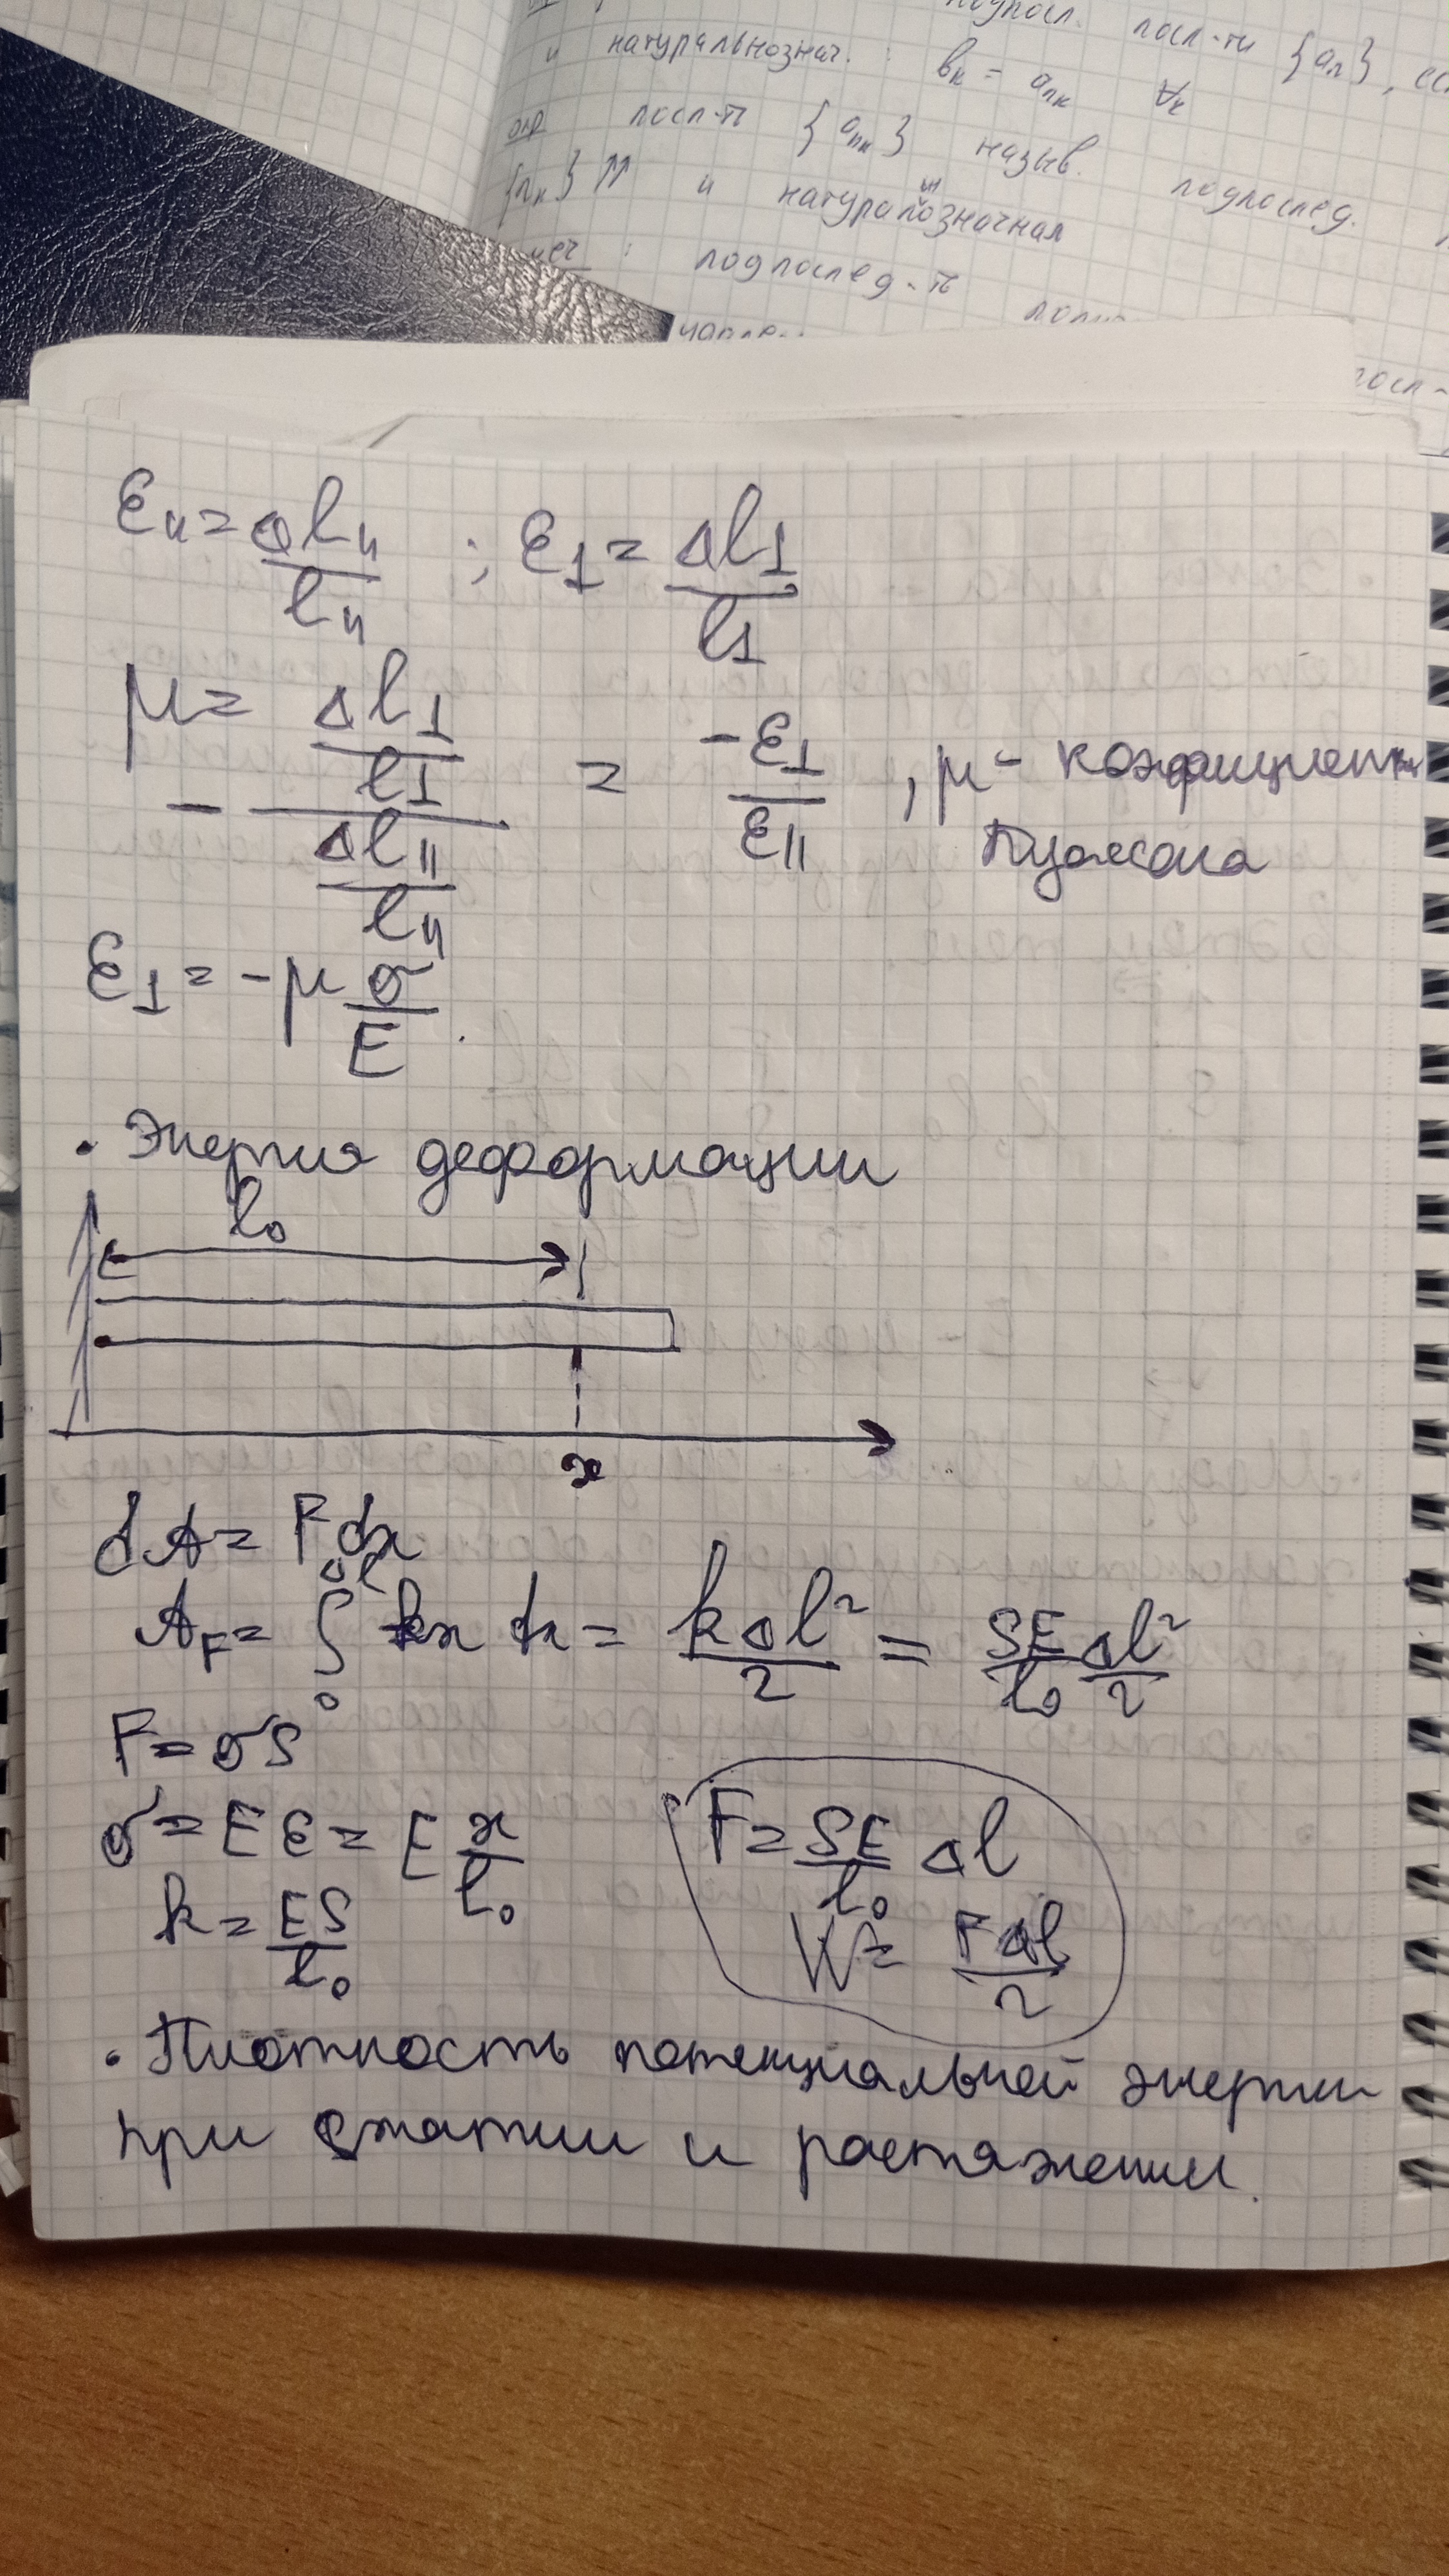 подпосл. посл-ти {aₙ}, ес
и натуральнознач. : bₖ = aₙₖ ∀ₖ
опр посл-ть {aₙₖ} назыв. подпослед.
{nₖ} ⇈ и натуральнозначная
подпослед-ть
посл-
ε∥ = Δl∥/l∥ ; ε⊥ = Δl⊥/l⊥
μ = - (Δl⊥/l⊥)/(Δl∥/l∥) = -ε⊥/ε∥ , μ - коэфициент
Пуассона
ε⊥ = -μ σ/E .
• Энергия деформации
l₀
x
dA = Fdx
A_F = ∫₀^Δl kx dx = kΔl²/2 = SE/l₀ Δl²/2
F = σS
σ = Eε = E x/l₀
k = ES/l₀
F = SE/l₀ Δl
W = FΔl/2
• Плотность потенциальной энергии
при сжатии и растяжении.